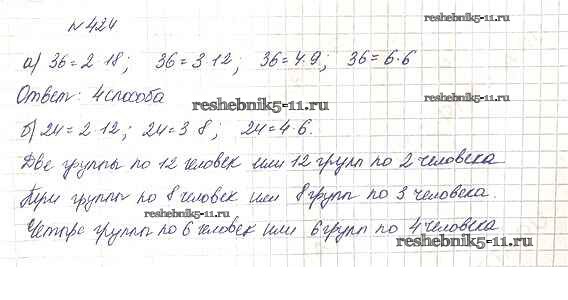 № 424
reshebnik5-11.ru
а) 36=2·18; 36=3·12; 36=4·9; 36=6·6
Ответ: 4 способа
reshebnik5-11.ru
reshebnik5-11.ru
б) 24=2·12; 24=3·8; 24=4·6.
Две группы по 12 человек или 12 групп по 2 человека
Три группы по 8 человек или 8 групп по 3 человека.
reshebnik5-11.ru
Четыре группы по 6 человек или 6 групп по 4 человека
reshebnik5-11.ru